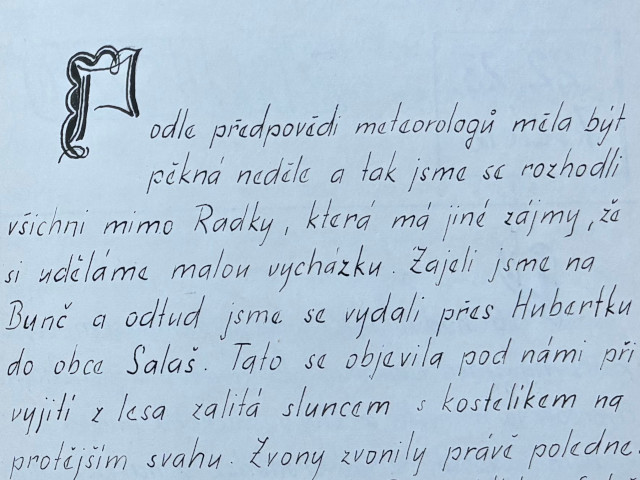 Podle předpovědi meteorologů měla být
pěkná neděle a tak jsme se rozhodli
všichni mimo Radky, která má jiné zájmy, že
si uděláme malou vycházku. Zajeli jsme na
Bunč a odtud jsme se vydali přes Hubertku
do obce Salaš. Tato se objevila pod námi při
vyjití z lesa zalitá sluncem s kostelíkem na
protějším svahu. Zvony zvonily právě poledne.